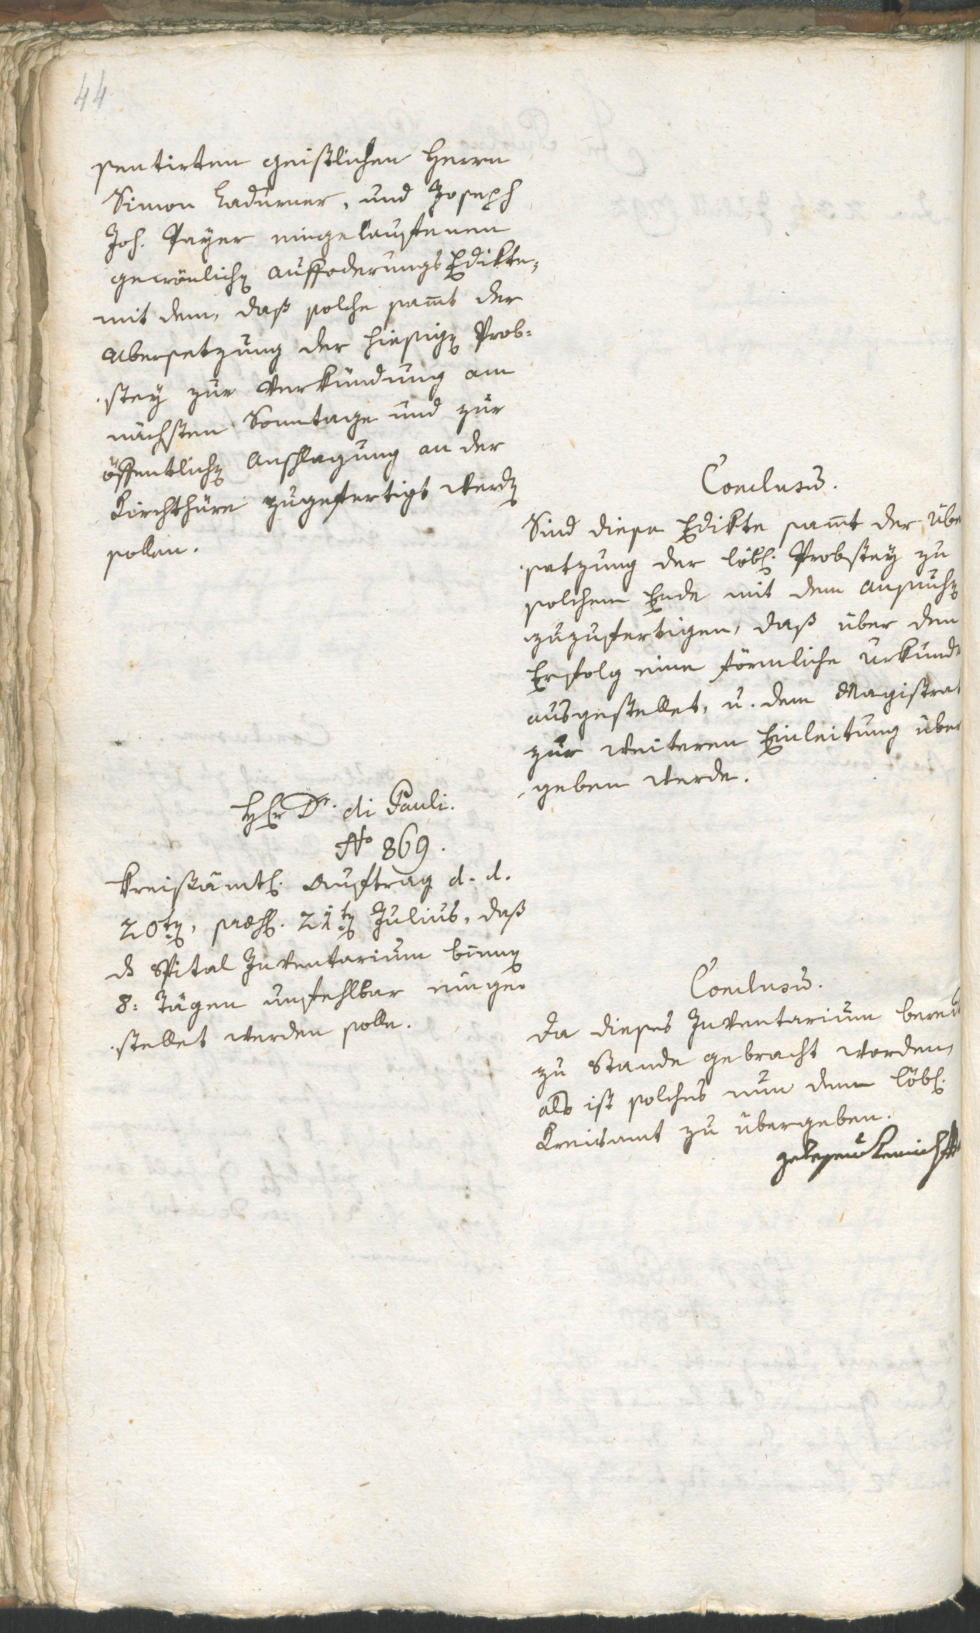 44
sentirten geistlichen Herrn
Simon Ladurner, und Joseph
Joh. Payer eingelauffenen
gewönlichen Aufforderungs Edikte,
mit dem, daß solche sam̄t der
Übersetzung der hiesigen Prob¬
stey zur Verkündung am
nächsten Sonntage und zur
öffentlichen Anschlagung an der
Kirchthüre zugefertigt werden
sollen.
Conclusū.
Sind diese Edikte sam̄t der Übe
setzung der löbl. Probstey zu
solchem Ende mit dem Ansuchen
zuzufertigen, daß über den
Erfolg eine förmliche Urkunde
ausgestellet, u. dem Magistrat
zur weiteren Einleitung über
geben werde.
Hr Dr. di Pauli.
No 869.
Kreisämtl. Auftrag d. d.
20ten, 21ten Julius, daß
ds Spital Inventarium binnen
8: Tägen unfehlbar einge¬
stellet werden solle.
Conclusū.
Da dieses Inventarium bereits
zu Stande gebracht worden,
als ist solches nun dem löbl.
Kreisamt zu übergeben.
gelesen